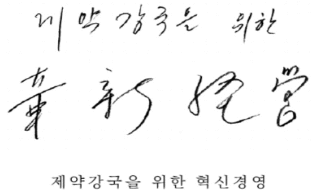 제약강국은 위한
革新経営
제약강국을 위한 혁신경영